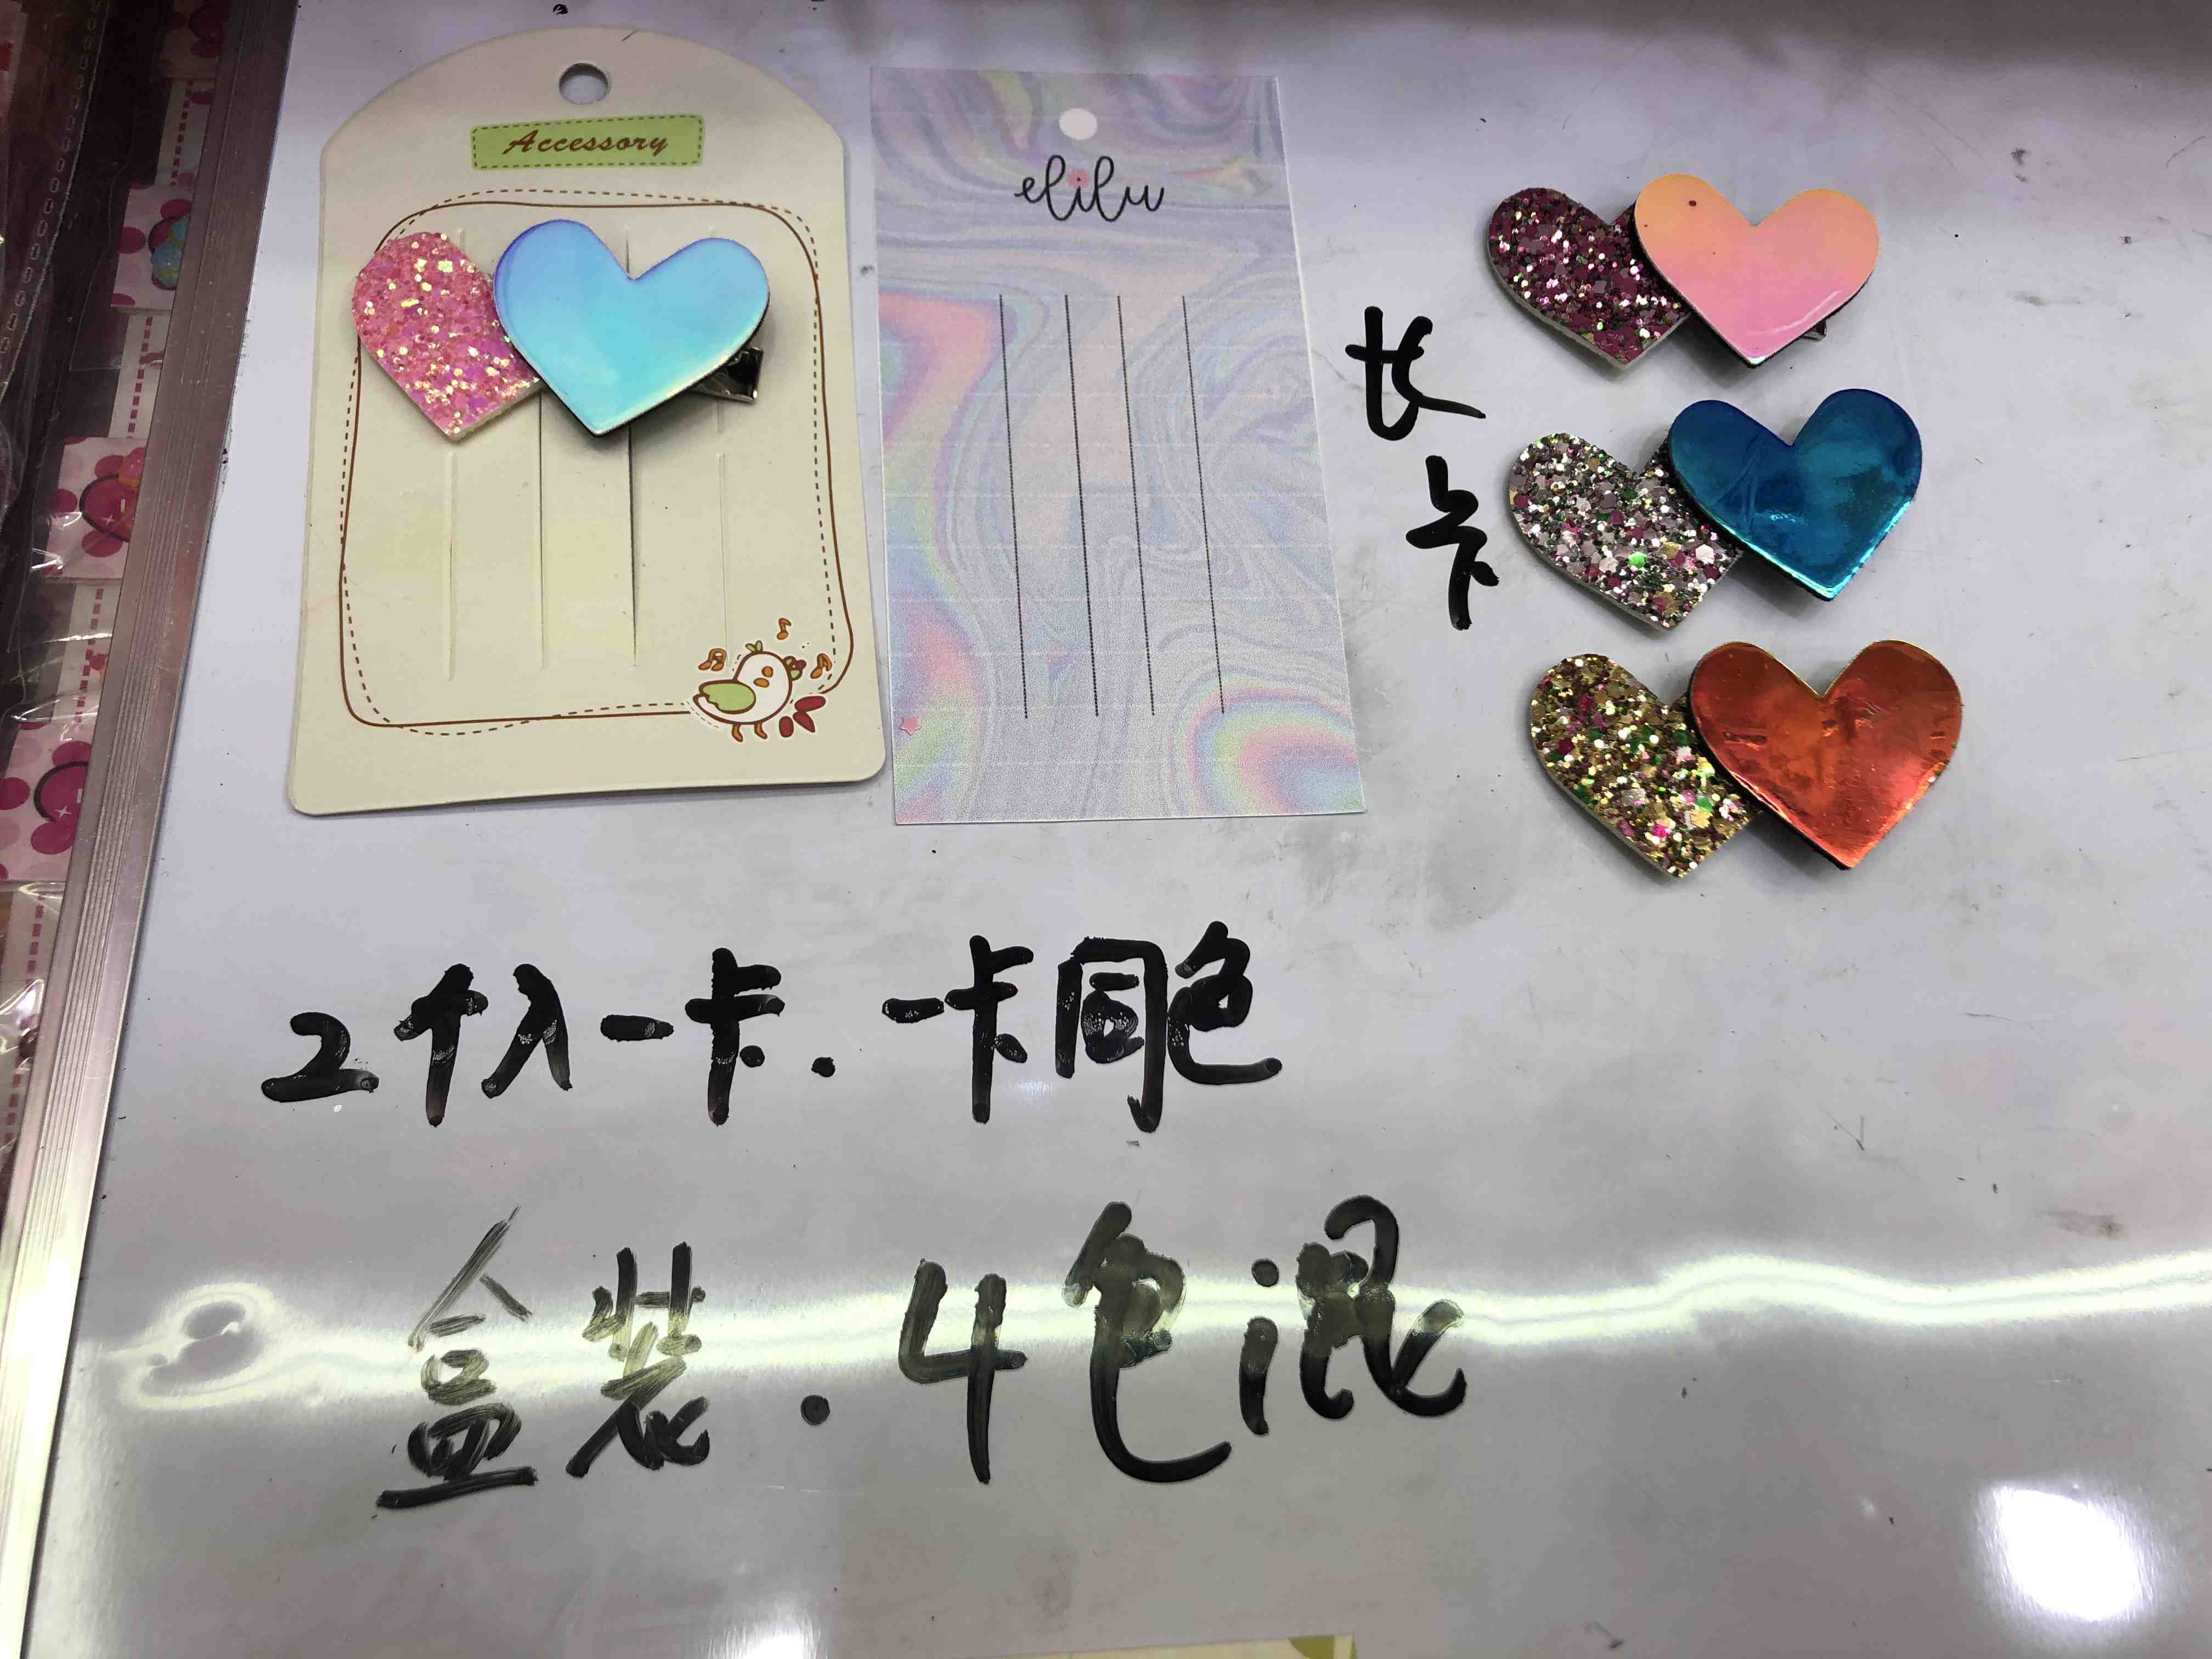 Accessory
elilu
长
卡
2个入一卡.一卡同色
盒装.4色混